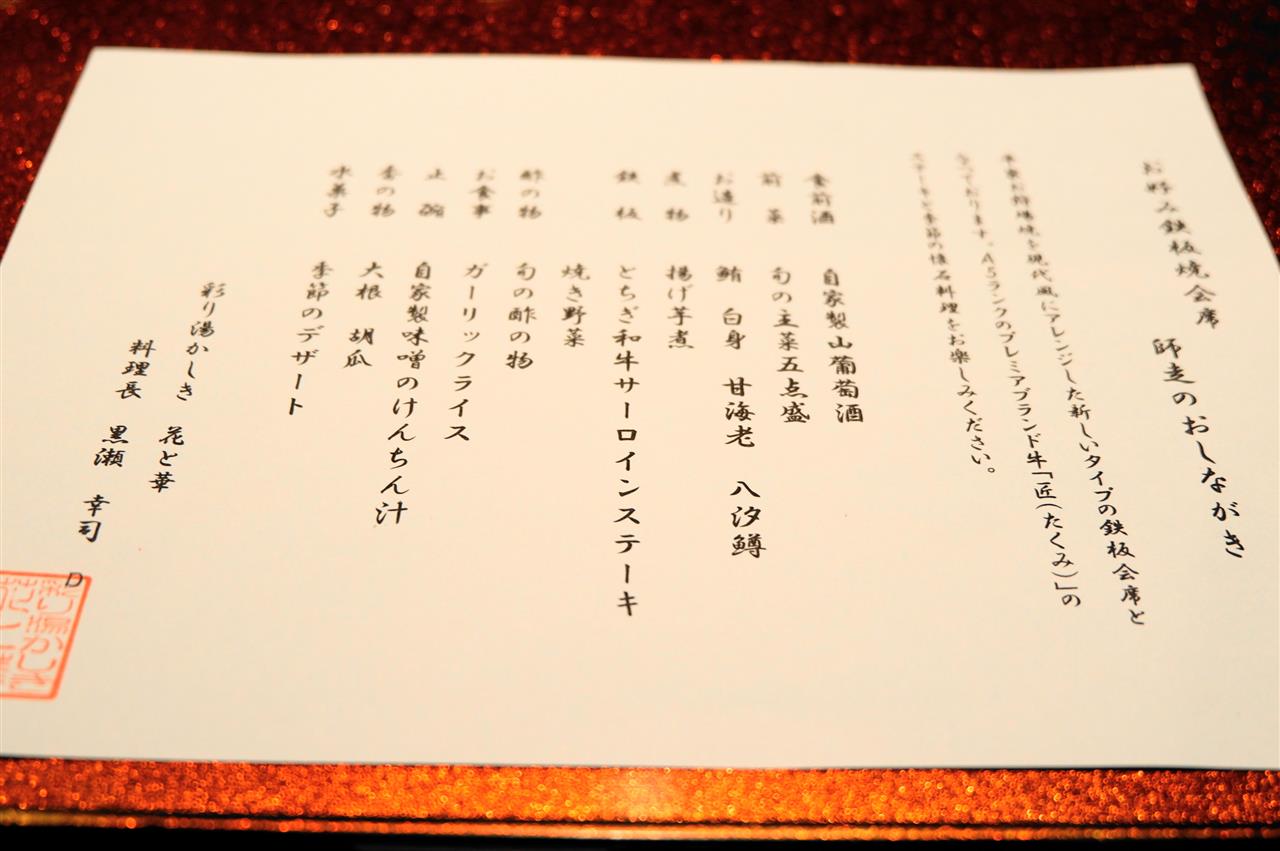 お好み鉄板焼会席　師走のおしながき
お狩場焼を現代風にアレンジした新しいタイプの鉄板会席と
なっております。A5ランクのプレミアブランド牛「匠（たくみ）」の
ステーキと季節の懐石料理をお楽しみください。
食前酒　自家製山葡萄酒
前菜　旬の主菜五点盛
お造り　鮪　白身　甘海老　八汐鱒
煮物　揚げ芋煮
鉄板　とちぎ和牛サーロインステーキ
焼き野菜
酢の物　旬の酢の物
お食事　ガーリックライス
止碗　自家製味噌のけんちん汁
香の物　大根　胡瓜
水菓子　季節のデザート
彩り湯かしき　花と華
料理長　黒瀬　幸司
D
彩り湯かしき